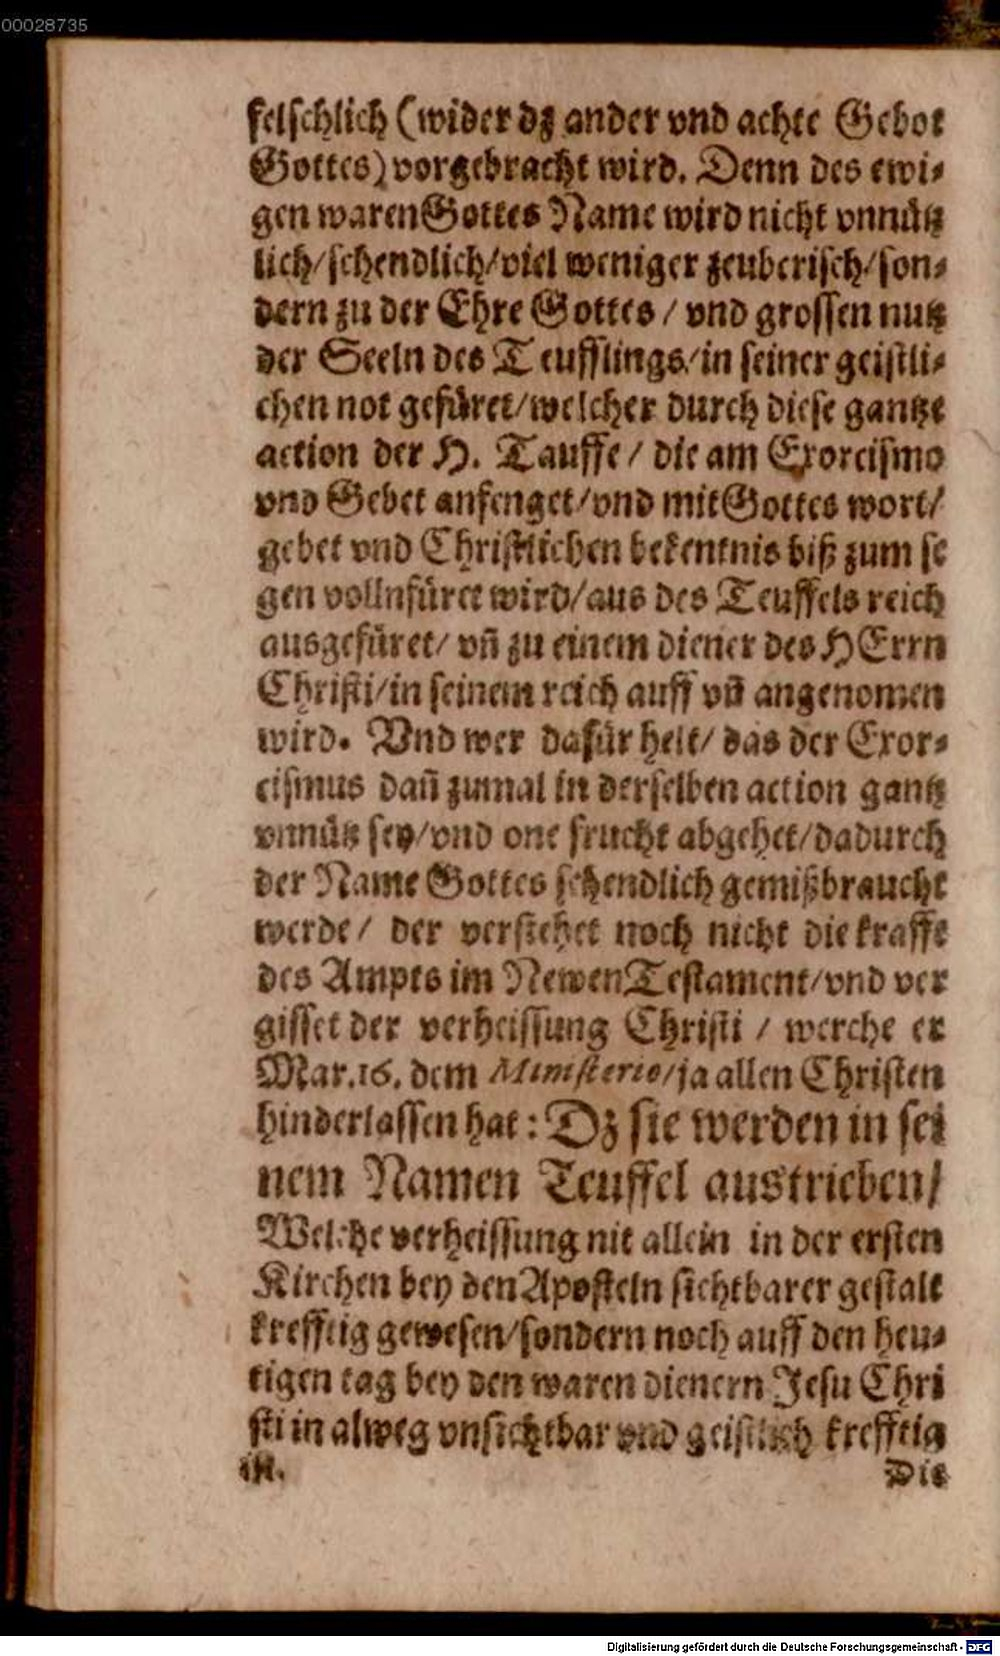 00028735
felschlich (wider dz ander vnd achte Gebot
Gottes) vorgebracht wird. Denn des ewi-
gen waren Gottes Name wird nicht vnnütz
lich/schendlich/viel weniger zeuberisch/son-
dern zu der Ehre Gottes / vnd grossen nutz
der Seeln des Teufflings/in seiner geistli-
chen not gefüret/welcher durch diese gantze
action der H. Tauffe / die am Exorcismo
vnd Gebet anfenget/vnd mit Gottes wort/
gebet vnd Christlichen bekentnis biß zum se
gen vollnfüret wird/aus des Teuffels reich
ausgefüret/ vñ zu einem diener des HErrn
Christi/in seinem reich auff vñ angenomen
wird. Vnd wer dafür helt/ das der Exor-
cismus dañ zumal in derselben action gantz
vnnütz sey/vnd one frucht abgehet/dadurch
der Name Gottes schendlich gemißbraucht
werde/ der verstehet noch nicht die krafft
des Ampts im Newen Testament/vnd ver
gisset der verheissung Christi / werche er
Mar.16. dem Ministerio/ja allen Christen
hinderlassen hat: Dz sie werden in sei
nem Namen Teuffel austrieben/
Welche verheissung nit allein in der ersten
Kirchen bey den Aposteln sichtbarer gestalt
krefftig gewesen/sondern noch auff den heu-
tigen tag bey den waren dienern Jesu Chri
sti in alweg vnsichtbar vnd geistlich krefftig
ist.
Die
Digitalisierung gefördert durch die Deutsche Forschungsgemeinschaft - DFG